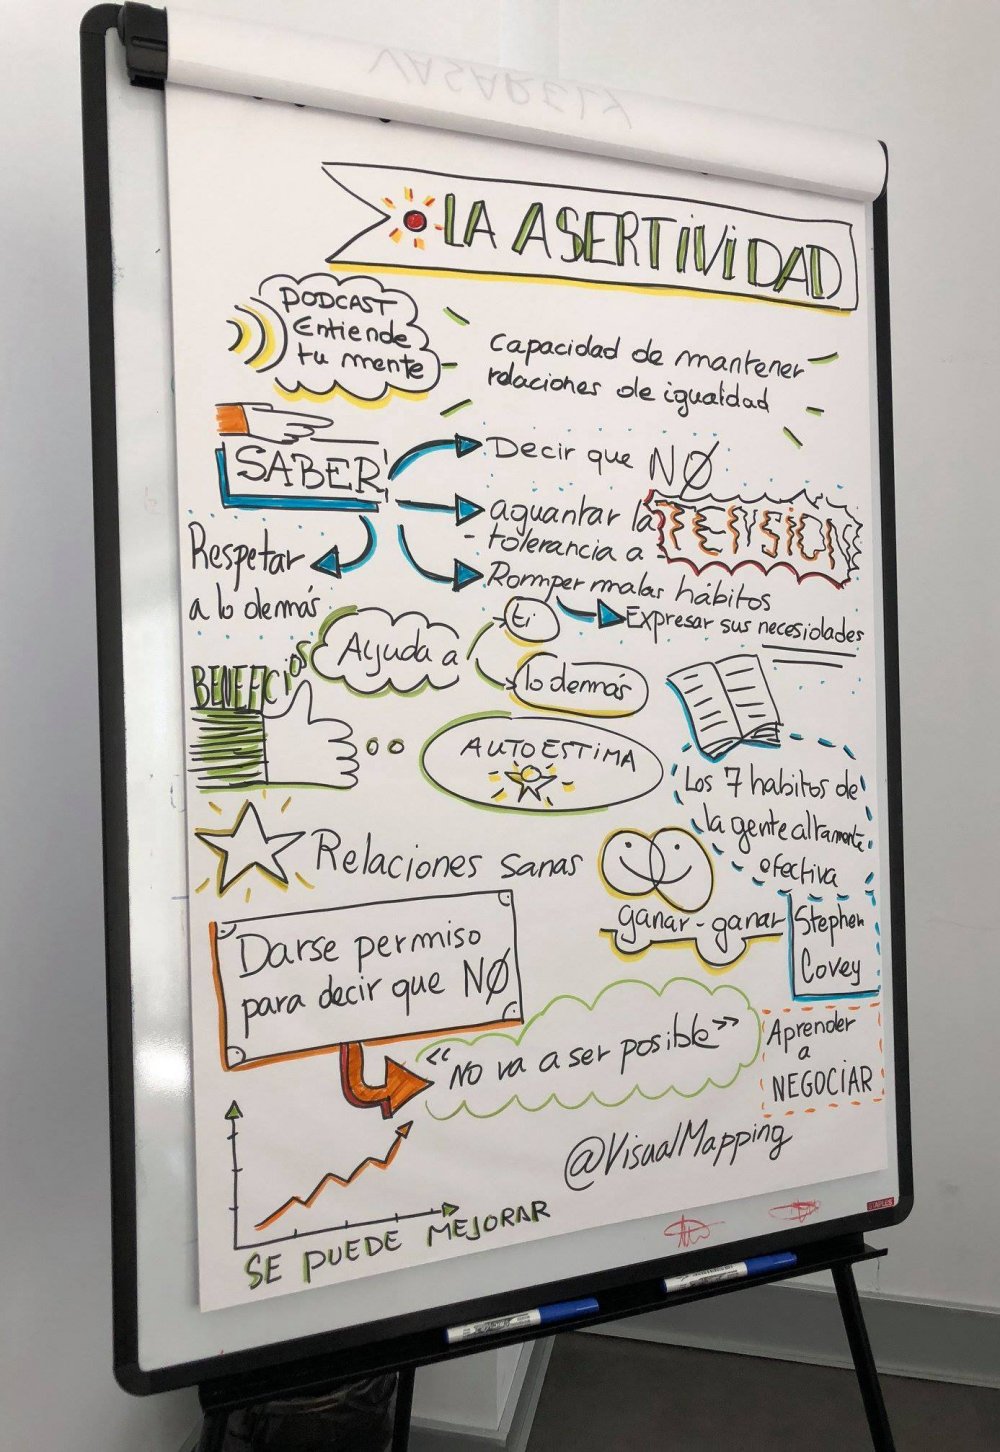 VASARELY
LA ASERTIVIDAD
PODCAST
Entiende
tu mente
capacidad de mantener
relaciones de igualdad
SABER
Decir que NO
aguantar la
- tolerancia a
TENSION
Romper malas hábitos
Expresar sus necesidades
Respetar
a lo demás
BENEFICIOS
Ayuda a
ti
lo demás
AUTOESTIMA
Los 7 habitos de
la gente altamente
efectiva
Stephen
Covey
Relaciones sanas
ganar - ganar
Darse permiso
para decir que NO
"No va a ser posible"
Aprender
a
NEGOCIAR
@VisualMapping
SE PUEDE MEJORAR
STAPLES